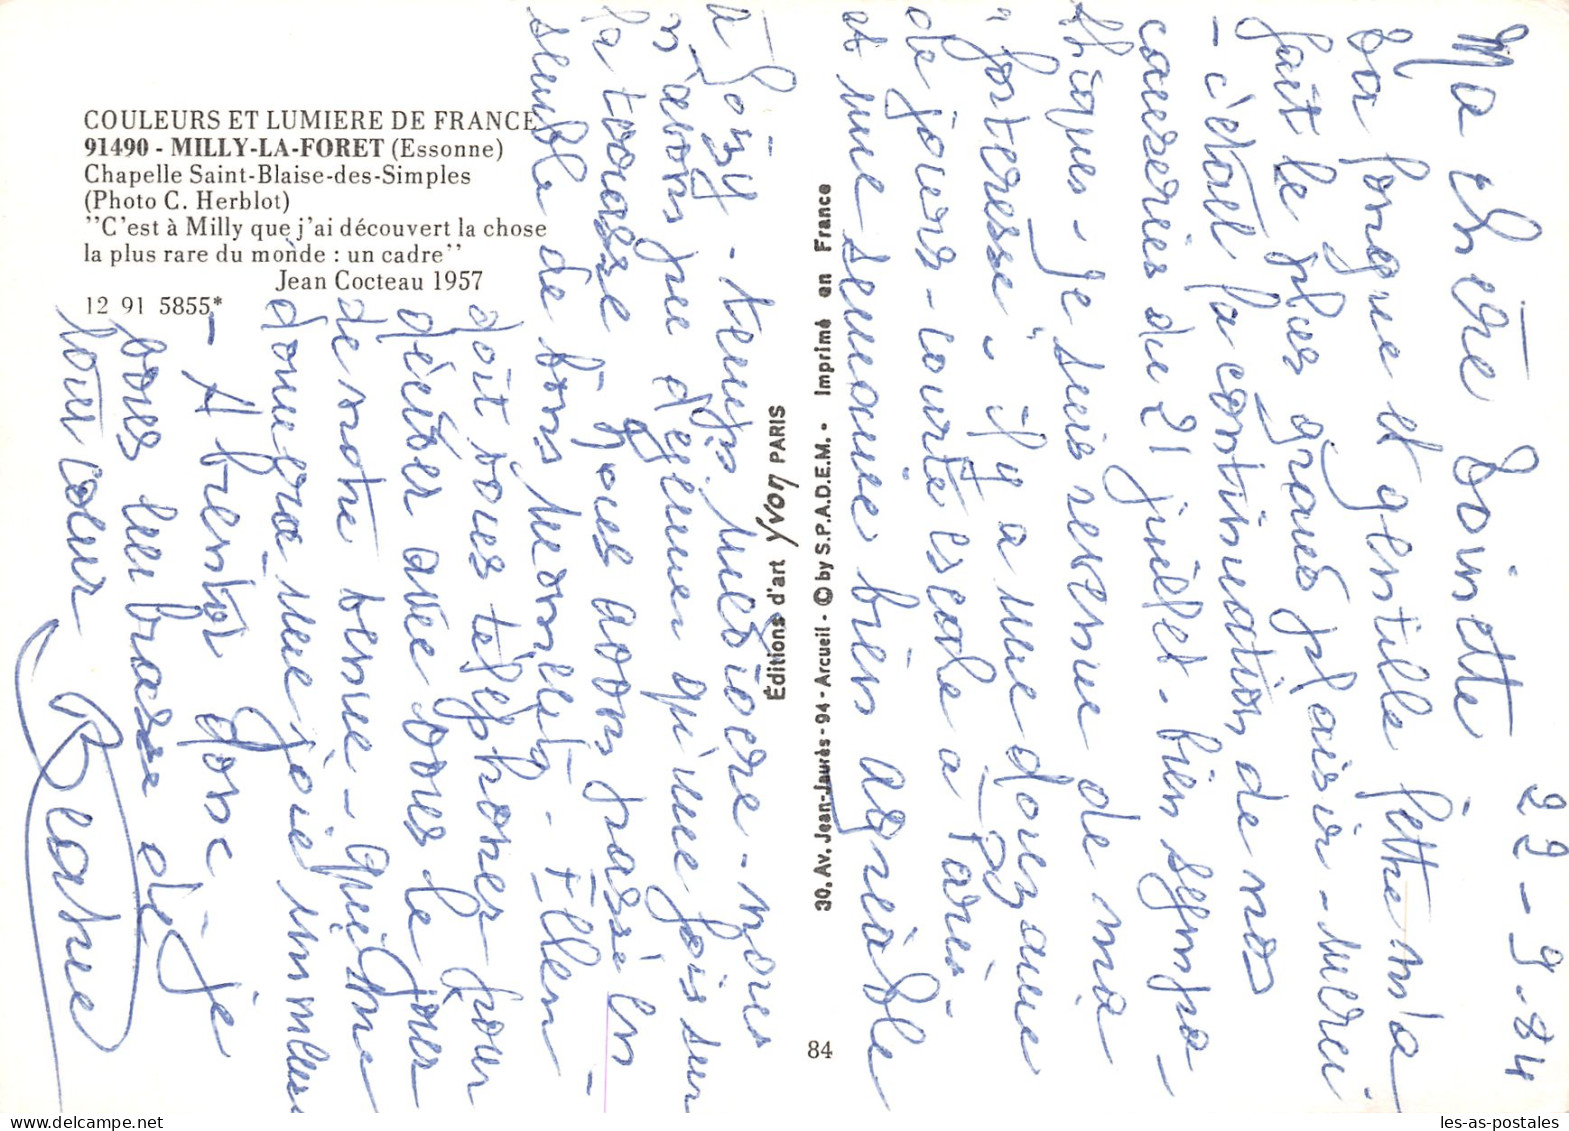 COULEURS ET LUMIERE DE FRANCE
91490 - MILLY-LA-FORET (Essonne)
Chapelle Saint-Blaise-des-Simples
(Photo C. Herblot)
"C'est à Milly que j'ai découvert la chose
la plus rare du monde : un cadre"
Jean Cocteau 1957
12 91 5855*
Éditions d'art YVON PARIS
30, Av. Jean-Jaurès - 94 - Arcueil - © by S.P.A.D.E.M. - Imprimé en France
84
22-9-84
Ma chère Toinette
Ta longue et gentille lettre m'a
fait le plus grand plaisir - merci
- c'était la continuation de nos
causeries du 21 juillet - bien sympa-
thiques - Je suis revenue de ma
"forteresse" - il y a une douzaine
de jours - courte escale à Paris -
et une semaine bien agréable
à - temps médiocre - nous
n'avons pu déjeuner qu'une fois sur
la terrasse - Nous avons passé en-
semble de bons moments - Ellen
doit vous téléphoner pour
décider avec vous le jour
de votre venue - qui me
donnera une joie immense
- A bientôt donc je
vous embrasse de
tout cœur